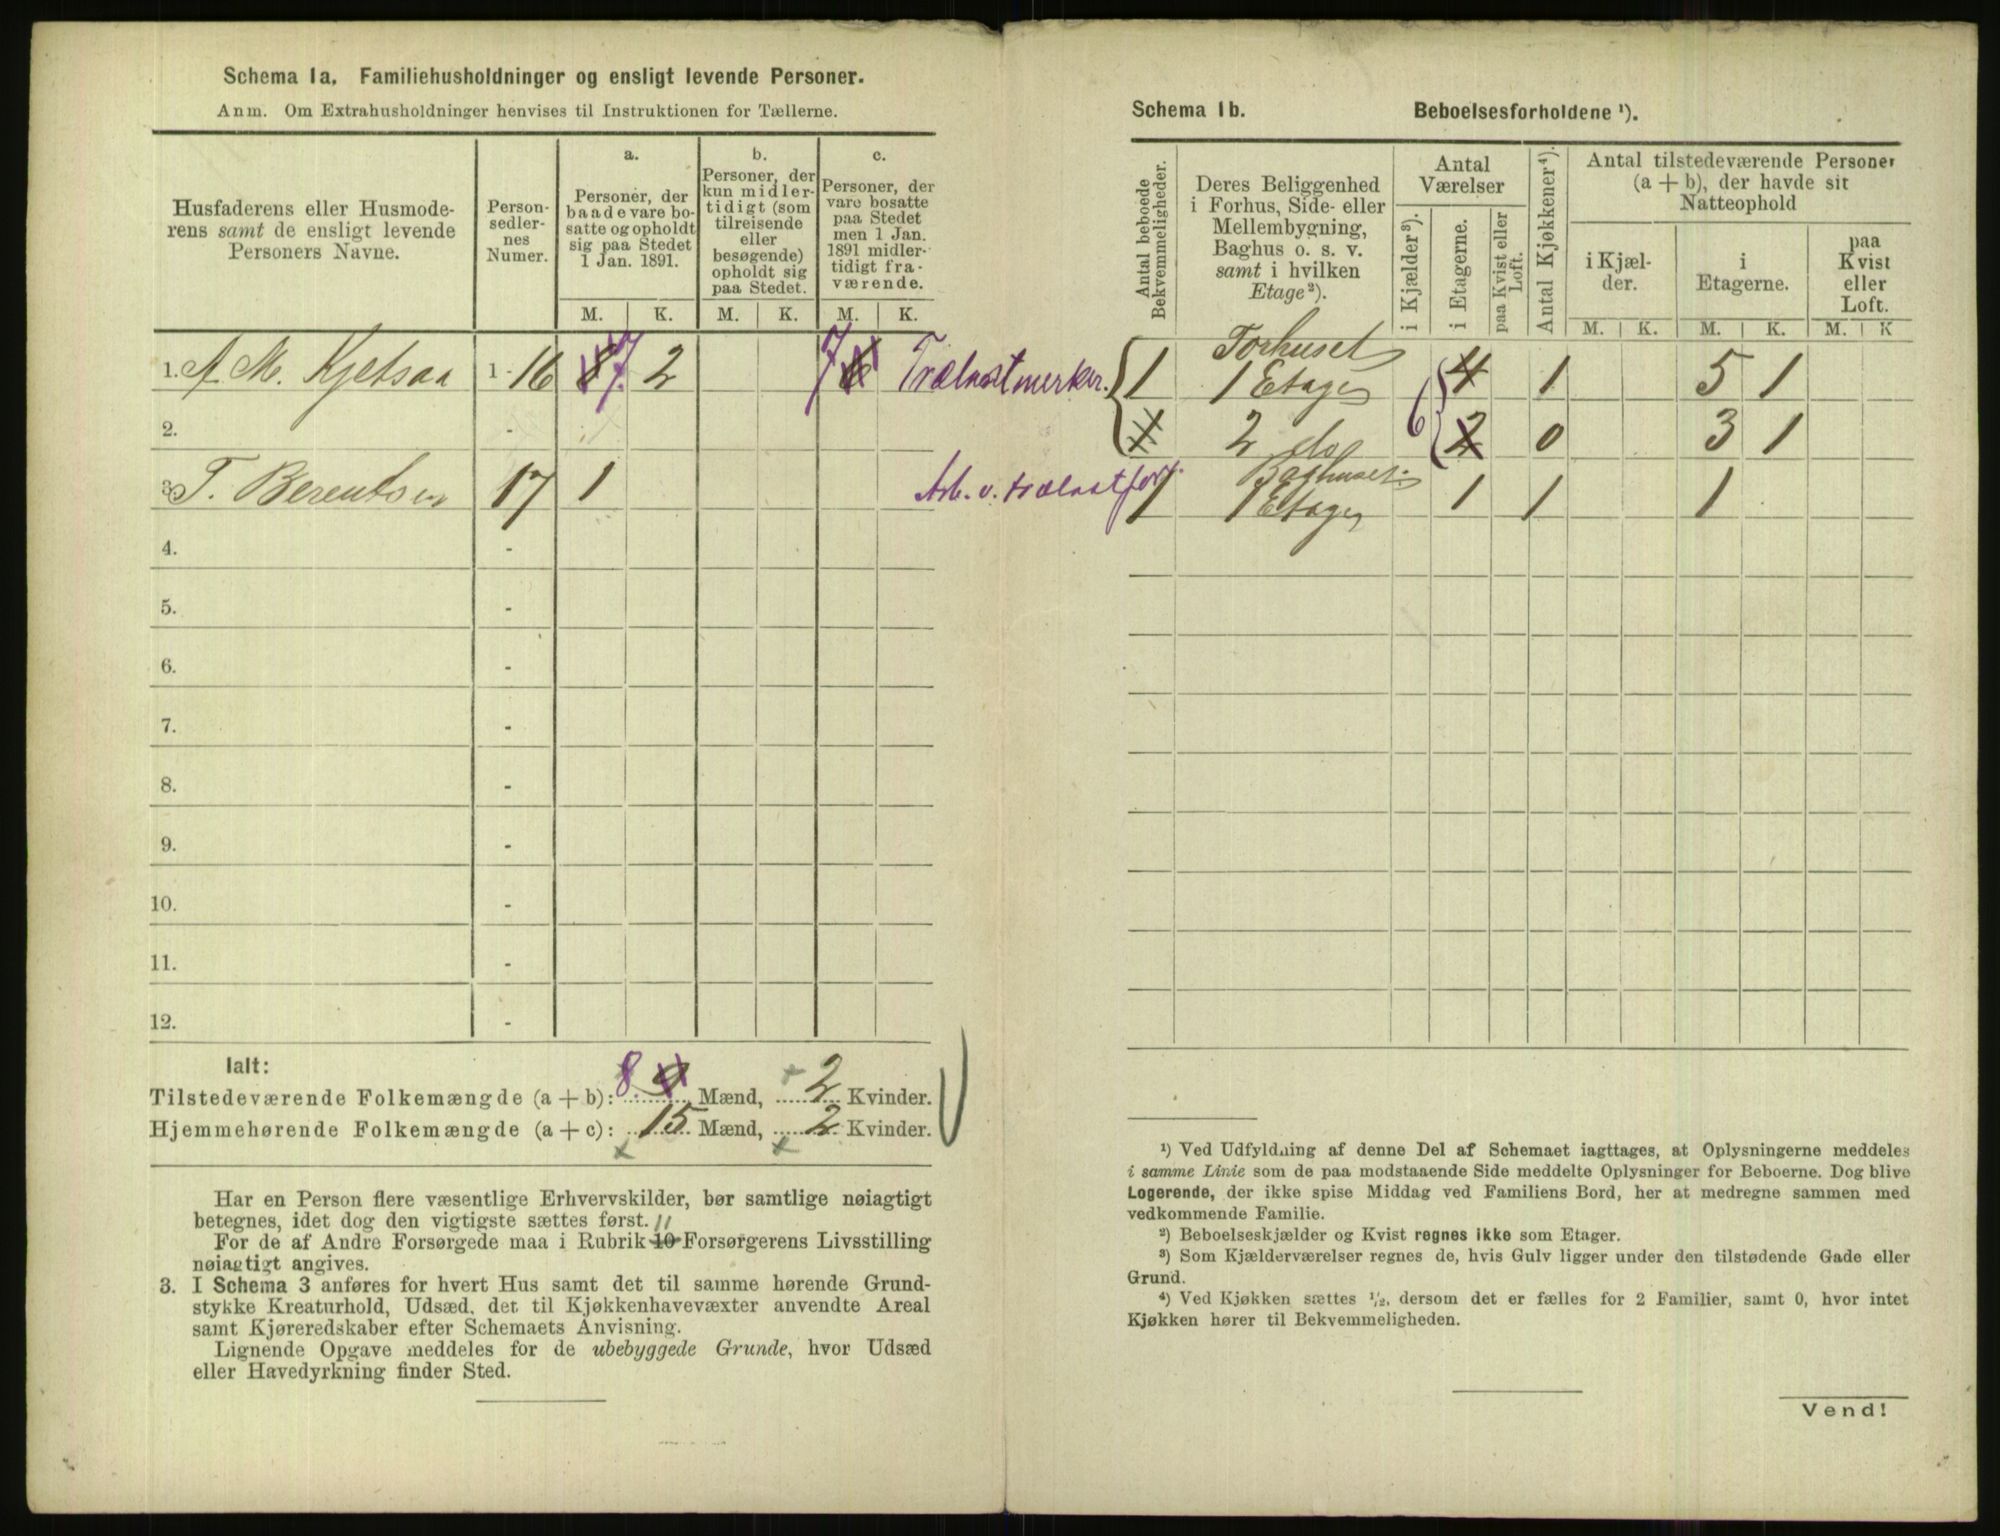 Schema 1a. Familiehusholdninger og ensligt levende Personer.
Anm. Om Extrahusholdninger henvises til Instruktionen for Tællerne.
Husfaderens eller Husmode-
rens samt de ensligt levende
Personers Navne.
Person-
sedler-
nes
Numer.
a.
Personer, der
baade vare bo-
satte og opholdt
sig paa Stedet
1 Jan. 1891.
b.
Personer, der
kun midler-
tidigt (som
tilreisende
eller
besøgende)
opholdt sig
paa Stedet.
c.
Personer, der
vare bosatte
paa Stedet
men 1 Jan.
1891 midler-
tidigt fra-
værende.
M. K. M. K. M. K.
1. A. M. Kjetsaa 1-16 8 7. 2 7 6 Trælastmerker.
2. -
3. T. Berentsen 17 1 Arb. v. trælastforr.
4. -
5. -
6. -
7. -
8. -
9. -
10. -
11. -
12. -
Ialt:
Tilstedeværende Folkemængde (a + b): 8. 9 Mænd, 2 Kvinder.
Hjemmehørende Folkemængde (a + c): 15 Mænd, 2 Kvinder.
Har en Person flere væsentlige Erhvervskilder, bør samtlige nøiagtigt
betegnes, idet dog den vigtigste sættes først. 11
For de af Andre Forsørgede maa i Rubrik 10 Forsørgerens Livsstilling
nøiagtigt angives.
3. I Schema 3 anføres for hvert Hus samt det til samme hørende Grund-
stykke Kreaturhold, Udsæd, det til Kjøkkenhavevæxter anvendte Areal
samt Kjøreredskaber efter Schemaets Anvisning.
Lignende Opgave meddeles for de ubebyggede Grunde, hvor Udsæd
eller Havedyrkning finder Sted.
Schema 1b. Beboelsesforholdene ¹).
Antal beboede
Bekvemmeligheder.
Deres Beliggenhed
i Forhus, Side- eller
Mellembygning,
Baghus o. s. v.
samt i hvilken
Etage²).
Antal
Værelser
i Kjælder³).
i Etagerne.
paa Kvist eller
Loft.
Antal Kjøkkener⁴).
Antal tilstedeværende Personer
(a + b), der havde sit
Natteophold
i Kjæl-
der.
i
Etagerne.
paa
Kvist
eller
Loft.
M. K. M. K. M. K
Forhuset
1 1 Etage 4 1 5 1
1 2 do 6 2 0 3 1
Baghuset
1 1 Etage 1 1 1
¹) Ved Udfyldning af denne Del af Schemaet iagttages, at Oplysningerne meddeles
i samme Linie som de paa modstaaende Side meddelte Oplysninger for Beboerne. Dog blive
Logerende, der ikke spise Middag ved Familiens Bord, her at medregne sammen med
vedkommende Familie.
²) Beboelseskjælder og Kvist regnes ikke som Etager.
³) Som Kjælderværelser regnes de, hvis Gulv ligger under den tilstødende Gade eller
Grund.
⁴) Ved Kjøkken sættes ½, dersom det er fælles for 2 Familier, samt 0, hvor intet
Kjøkken hører til Bekvemmeligheden.
Vend!